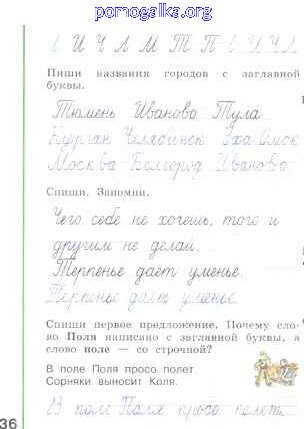 pomogalka.org
И Ч Л М Т П И Ч Л
Пиши названия городов с заглавной
буквы.
Тюмень Иваново Тула
Курган Челябинск Омск
Москва Белгород Иваново
Спиши. Запомни.
Чего себе не хочешь, того и
другим не делай.
Терпенье даёт уменье.
Терпенье даёт уменье.
Спиши первое предложение. Почему сло-
во Поля написано с заглавной буквы, а
слово поле — со строчной?
В поле Поля просо полет.
Сорняки выносит Коля.
В поле Поля просо полет.
36